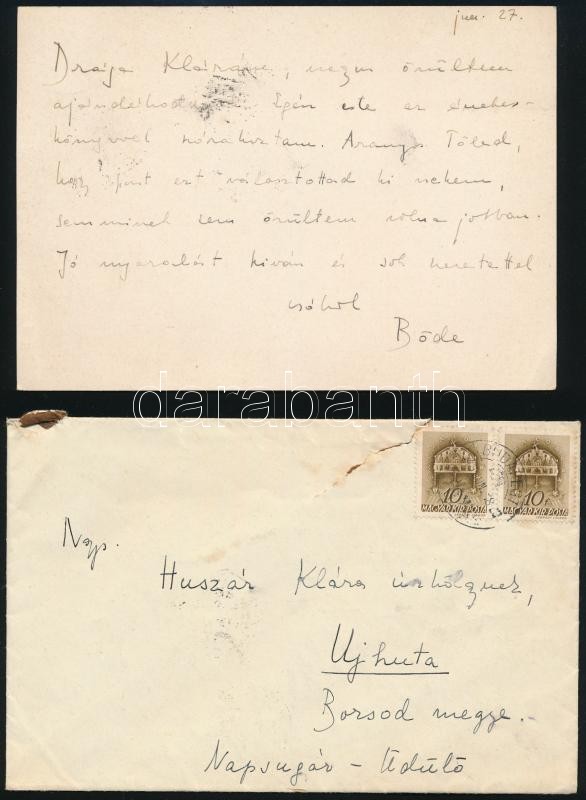 jun. 27.
Drága Klárám, nagyon örültem
ajándékodnak. Egész este az énekes-
könyvvel szórakoztam. Aranyos Tőled,
hogy épint ezt választottad ki nekem,
semminek sem örültem volna jobban.
Jó nyaralást kíván és sok szeretettel
csókol
Böde
darabanth
10
MAGYAR KIR. POSTA
10
MAGYAR KIR. POSTA
BUDAPEST
Nags.
Huszár Klára úrhölgynek,
Ujhuta
Borsod megye.
Napsugár - Üdülő